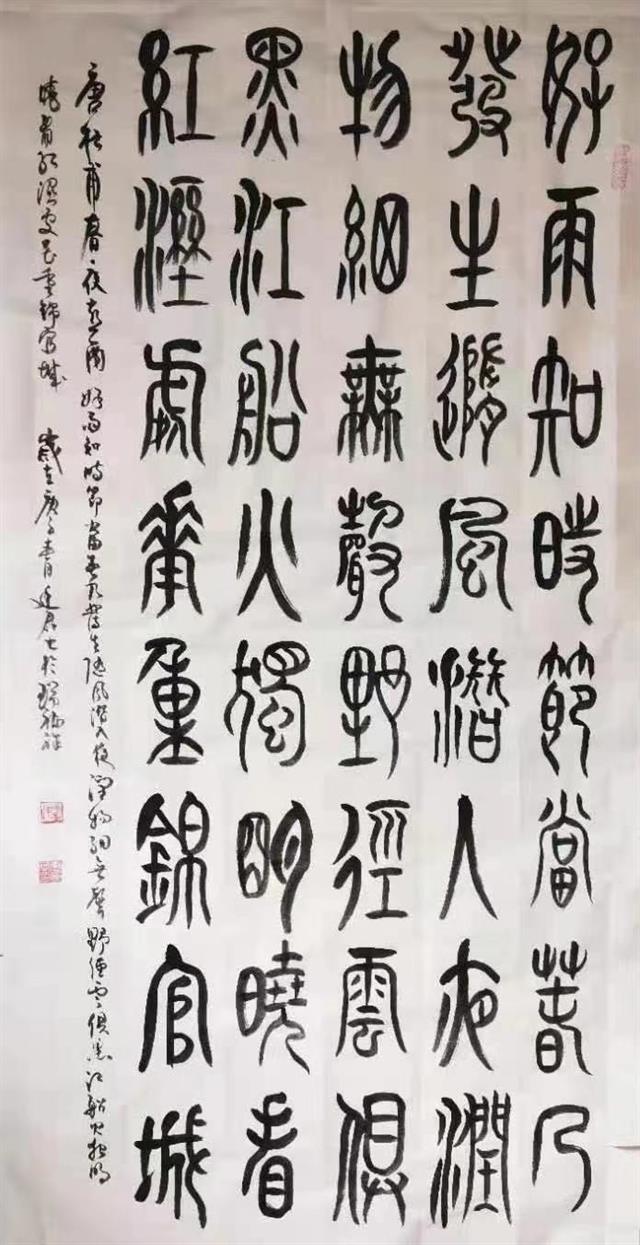 好雨知時節當春乃
發生隨風潛入夜潤
物細無聲野徑雲俱
黑江船火獨明曉看
紅溼處華重錦官城
唐杜甫春夜喜雨 好雨知時節當春乃發生隨風潛入夜潤物細無聲野徑雲俱黑江船火獨明
曉看紅溼處花重錦官城 歲在庚子